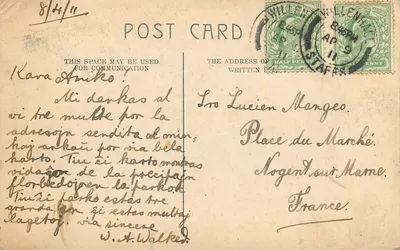 8/4/11
POST CARD
THIS SPACE MAY BE USED
FOR COMMUNICATION
THE ADDRESS
WRITTEN
WILLENHALL
8 45 PM
AP 9
11
STAFFS
Kara Amiko!
Mi dankas al
vi tre multe por la
adresojn sendita al mi,
kaj ankaŭ por via bela
karto. Tiu ĉi karto montras
vidaĵon de la precipa
florbedojn en la parko.
Tiu ĉi parko estas tre
granda kaj ĝi estas multaj
lagetoj. via sincere
W. A. Walked.
Sro Lucien Mangeo.
Place du Marché.
Nogent sur Marne.
France.